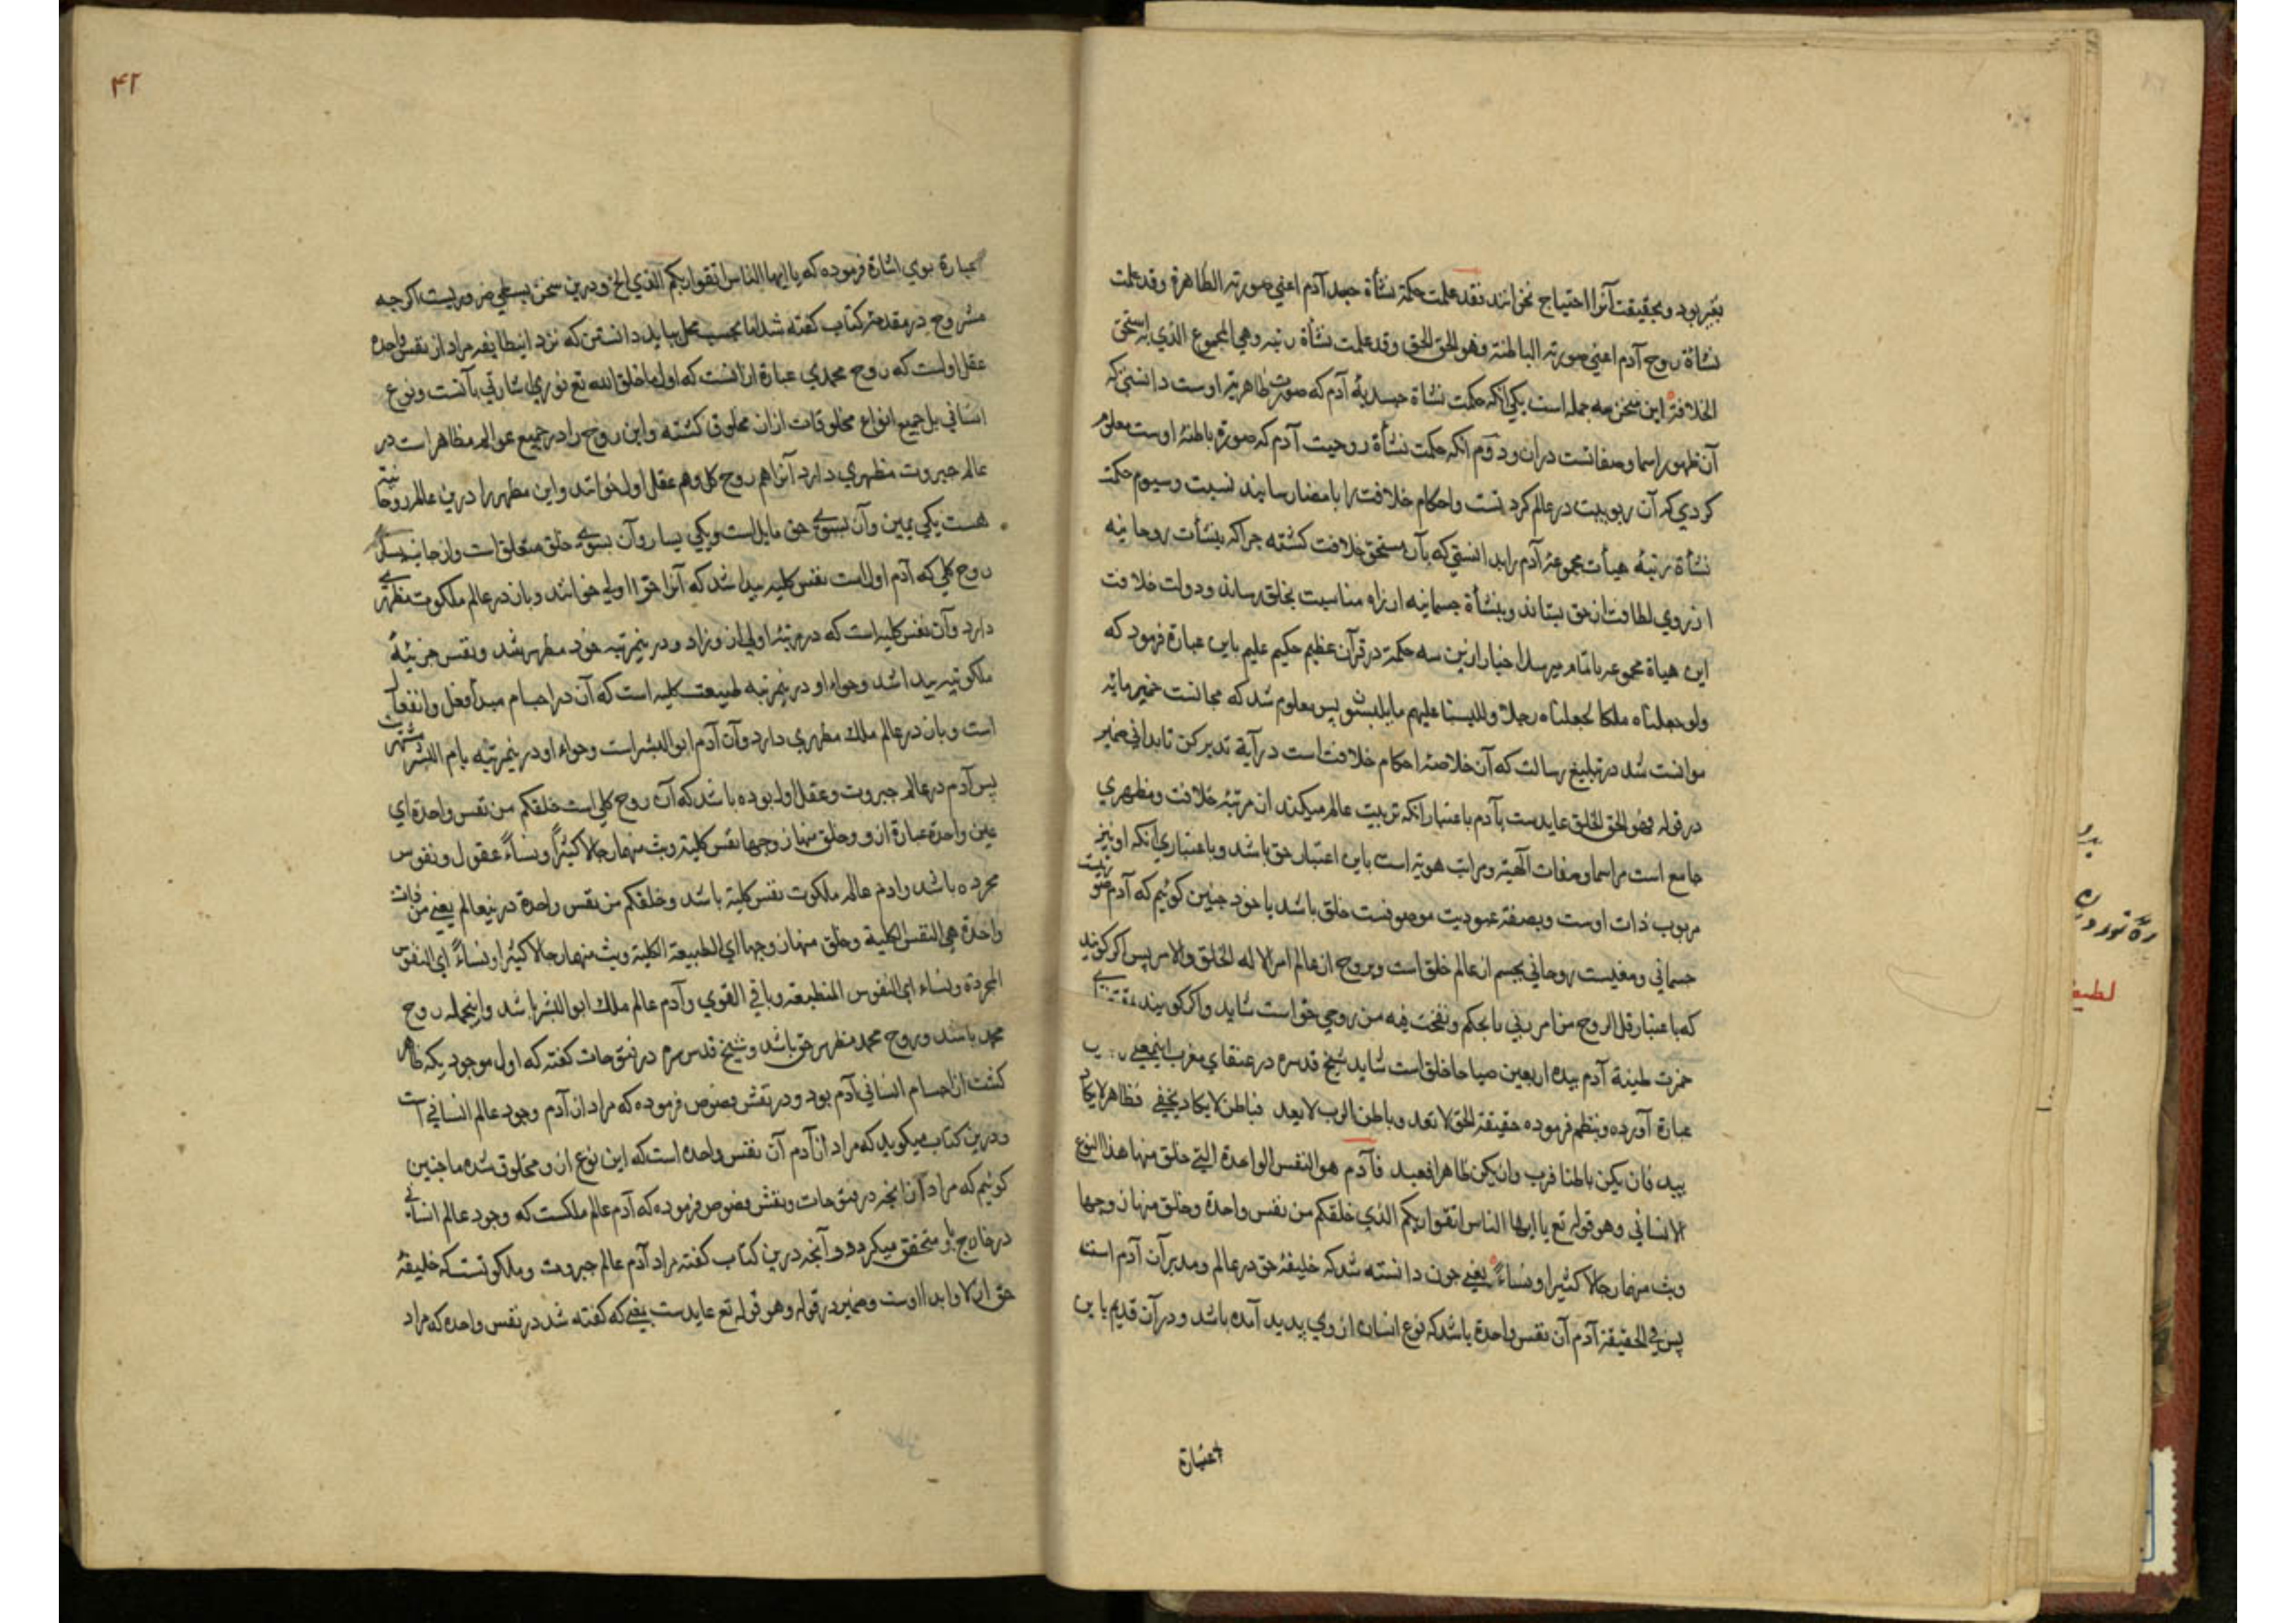 بغیر بود و بحقیقت آنرا احتیاج نخوانند فقد علمت حکمة نشأة جسد آدم اعنی صورته الظاهرة وقد علمت
نشأة روح آدم اعنی صورته الباطنة وهو الحق الخلق وقد علمت نشأة رتبته وهی المجموع الذی به استحق
الخلافة این سخن سه جمله است یکی آنکه حکمت نشأة جسدیهٔ آدم که صورت ظاهریهٔ اوست دانستی که
آن ظهور اسما و صفاتست در آن و دوّم آنکه حکمت نشأة روحیت آدم که صورة باطنهٔ اوست معلوم
کردی که آن ربوبیت در عالم کردنست و احکام خلافت را بامضا رسانیدنست و سیوم حکمت
نشأة رتبهٔ هیأت مجموعهٔ آدم را بدانستی که بآن مستحق خلافت کشته جراکه بنشأت روحانیه
از روی لطافت از حق بستاند و بنشأة جسمانیه از راه مناسبت بخلق رساند و دولت خلافت
این هیاة مجموعه باتمام میرسد اخبار ازین سه حکمة در قرآن عظیم حکیم علیم باین عبارة فرمود که
ولو جعلناه ملکا لجعلناه رجلا وللبسنا علیهم ما یلبسون پس معلوم شد که مجانست خمیرمایهٔ
موانست شد در تبلیغ رسالت که آن خلاصهٔ احکام خلافت است در آیة تدبر کن تا بدانی ضمیر
در قوله وهو الحق الخلق عایدست بآدم باعتبار آنکه تربیت عالم میکند از مرتبهٔ خلافت و مظهری
جامع است مر اسما و صفات الهیّه و مراتب هویه است باین اعتبار حق باشد و باعتباری آنکه او نیز
مربوب ذات اوست و بصفة عبودیت موصوفست خلق باشد یا خود جنین کوئیم که آدم
جسمانی و روحانی بجسم از عالم خلق است و بروح از عالم امر الا له الخلق والامر پس اکر کویند
که باعتبار قل الروح من امر ربی یا بحکم ونفخت فیه من روحی حق است شاید و اکر کویند
خمرت طینة آدم بیدی اربعین صباحا خلق است شاید شیخ قدسره در عنقای مغرب
عبارة آورده و بنظم فرموده حقیقة الحق لا تعد وباطن الرب لا یعد فباطن لا یکاد یخفی فظاهر لا یکاد
یبد فان یکن باطنا فرب وان یکن ظاهرا فعبد فآدم هو النفس الواحدة التی خلق منها هذا النوع
الانسانی وهو قوله تع یا ایها الناس اتقوا ربکم الذی خلقکم من نفس واحدة وخلق منها زوجها
وبث منهما رجالا کثیرا ونساءً یعنی جون دانسته شد که خلیفهٔ حق در عالم و مدبر آن آدم است
پس فی الحقیقة آدم آن نفس واحدة باشد که نوع انسان از وی پدید آمده باشد و در آن قدیم باین
عبارة
۴۲
عبارة بوی اشارة فرموده که یا ایها الناس اتقوا ربکم الذی الخ و درین سخن بسطی ضروریست اکرجه
مشروح در مقدمهٔ کتاب کفته شد اما بحسب محل بباید دانستن که نزد اینطایفه مراد از نفس واحده
عقل اولست که روح محمدی عبارة از آنست که اول ما خلق الله تع نوری اشارتی بآنست و نوع
انسانی بل جمیع انواع مخلوقات از آن مخلوق کشته و این روح را در جمیع عوالم مظاهر است در
عالم جبروت مظهری دارد آنرا هم روح کل و هم عقل اول خوانند و این مظهر را درین عالم روحانیّه
هست یکی یمین و آن بسوی حق مایل است و یکی یسار و آن بسوی خلق متعلق است و از جانب یسار
روح کلی که آدم اول است نفس کلیه پیدا شد که آنرا حوا اولی خوانند و باز در عالم ملکوت مظهری
دارد و آن نفس کلیه است که در مرتبهٔ اولی از و زاد و درین مرتبه خود مظهر شد و نفس جزئیهٔ
ملکوتیه پیدا شد و حواء او درین مرتبه طبیعت کلیه است که آن در اجسام مبدأ فعل و انفعال
است و باز در عالم ملک مظهری دارد و آن آدم ابو البشر است و حواء او درین مرتبه بام البشر
پس آدم در عالم جبروت و عقل اول بوده باشد که آن روح کلی است خلقکم من نفس واحدة ای
عین واحدة عبارة از و وخلق منها زوجها نفس کلیّه وبث منهما رجالا کثیرًا ونساءً عقول و نفوس
مجرده باشد و آدم عالم ملکوت نفس کلیة باشد وخلقکم من نفس واحدة درینعالم یعنی من ذات
واحدة هی النفس الکلیة وخلق منها زوجها ای الطبیعة الکلیة وبث منهما رجالا کثیرا ونساءً ای النفوس
المجردة ونساء ای النفوس المنطبعة وباقی القوی وآدم عالم ملک ابو البشر باشد و اینجمله روح
محمد باشند و روح محمد مظهر حق باشد و شیخ قدس سره در فتوحات کفته که اول موجودیکه ظاهر
کشت از اجسام انسانی آدم بود و در نقش فصوص فرموده که مراد از آدم وجود عالم انسانی است
و درین کتاب میکوید که مراد از آدم آن نفس واحده است که این نوع از و مخلوق شده ما جنین
کوئیم که مراد از آنجه در فتوحات و نقش فصوص فرموده که آدم عالم ملکست که وجود عالم انسانی
در خارج باو متحقق میکردد و آنجه درین کتاب کفته مراد آدم عالم جبروت و ملکوتست که خلیفهٔ
حق ازلا و ابدا اوست و ضمیر در قوله وهو قوله تع عایدست بمعنی که کفته شد در نفس واحده که مراد